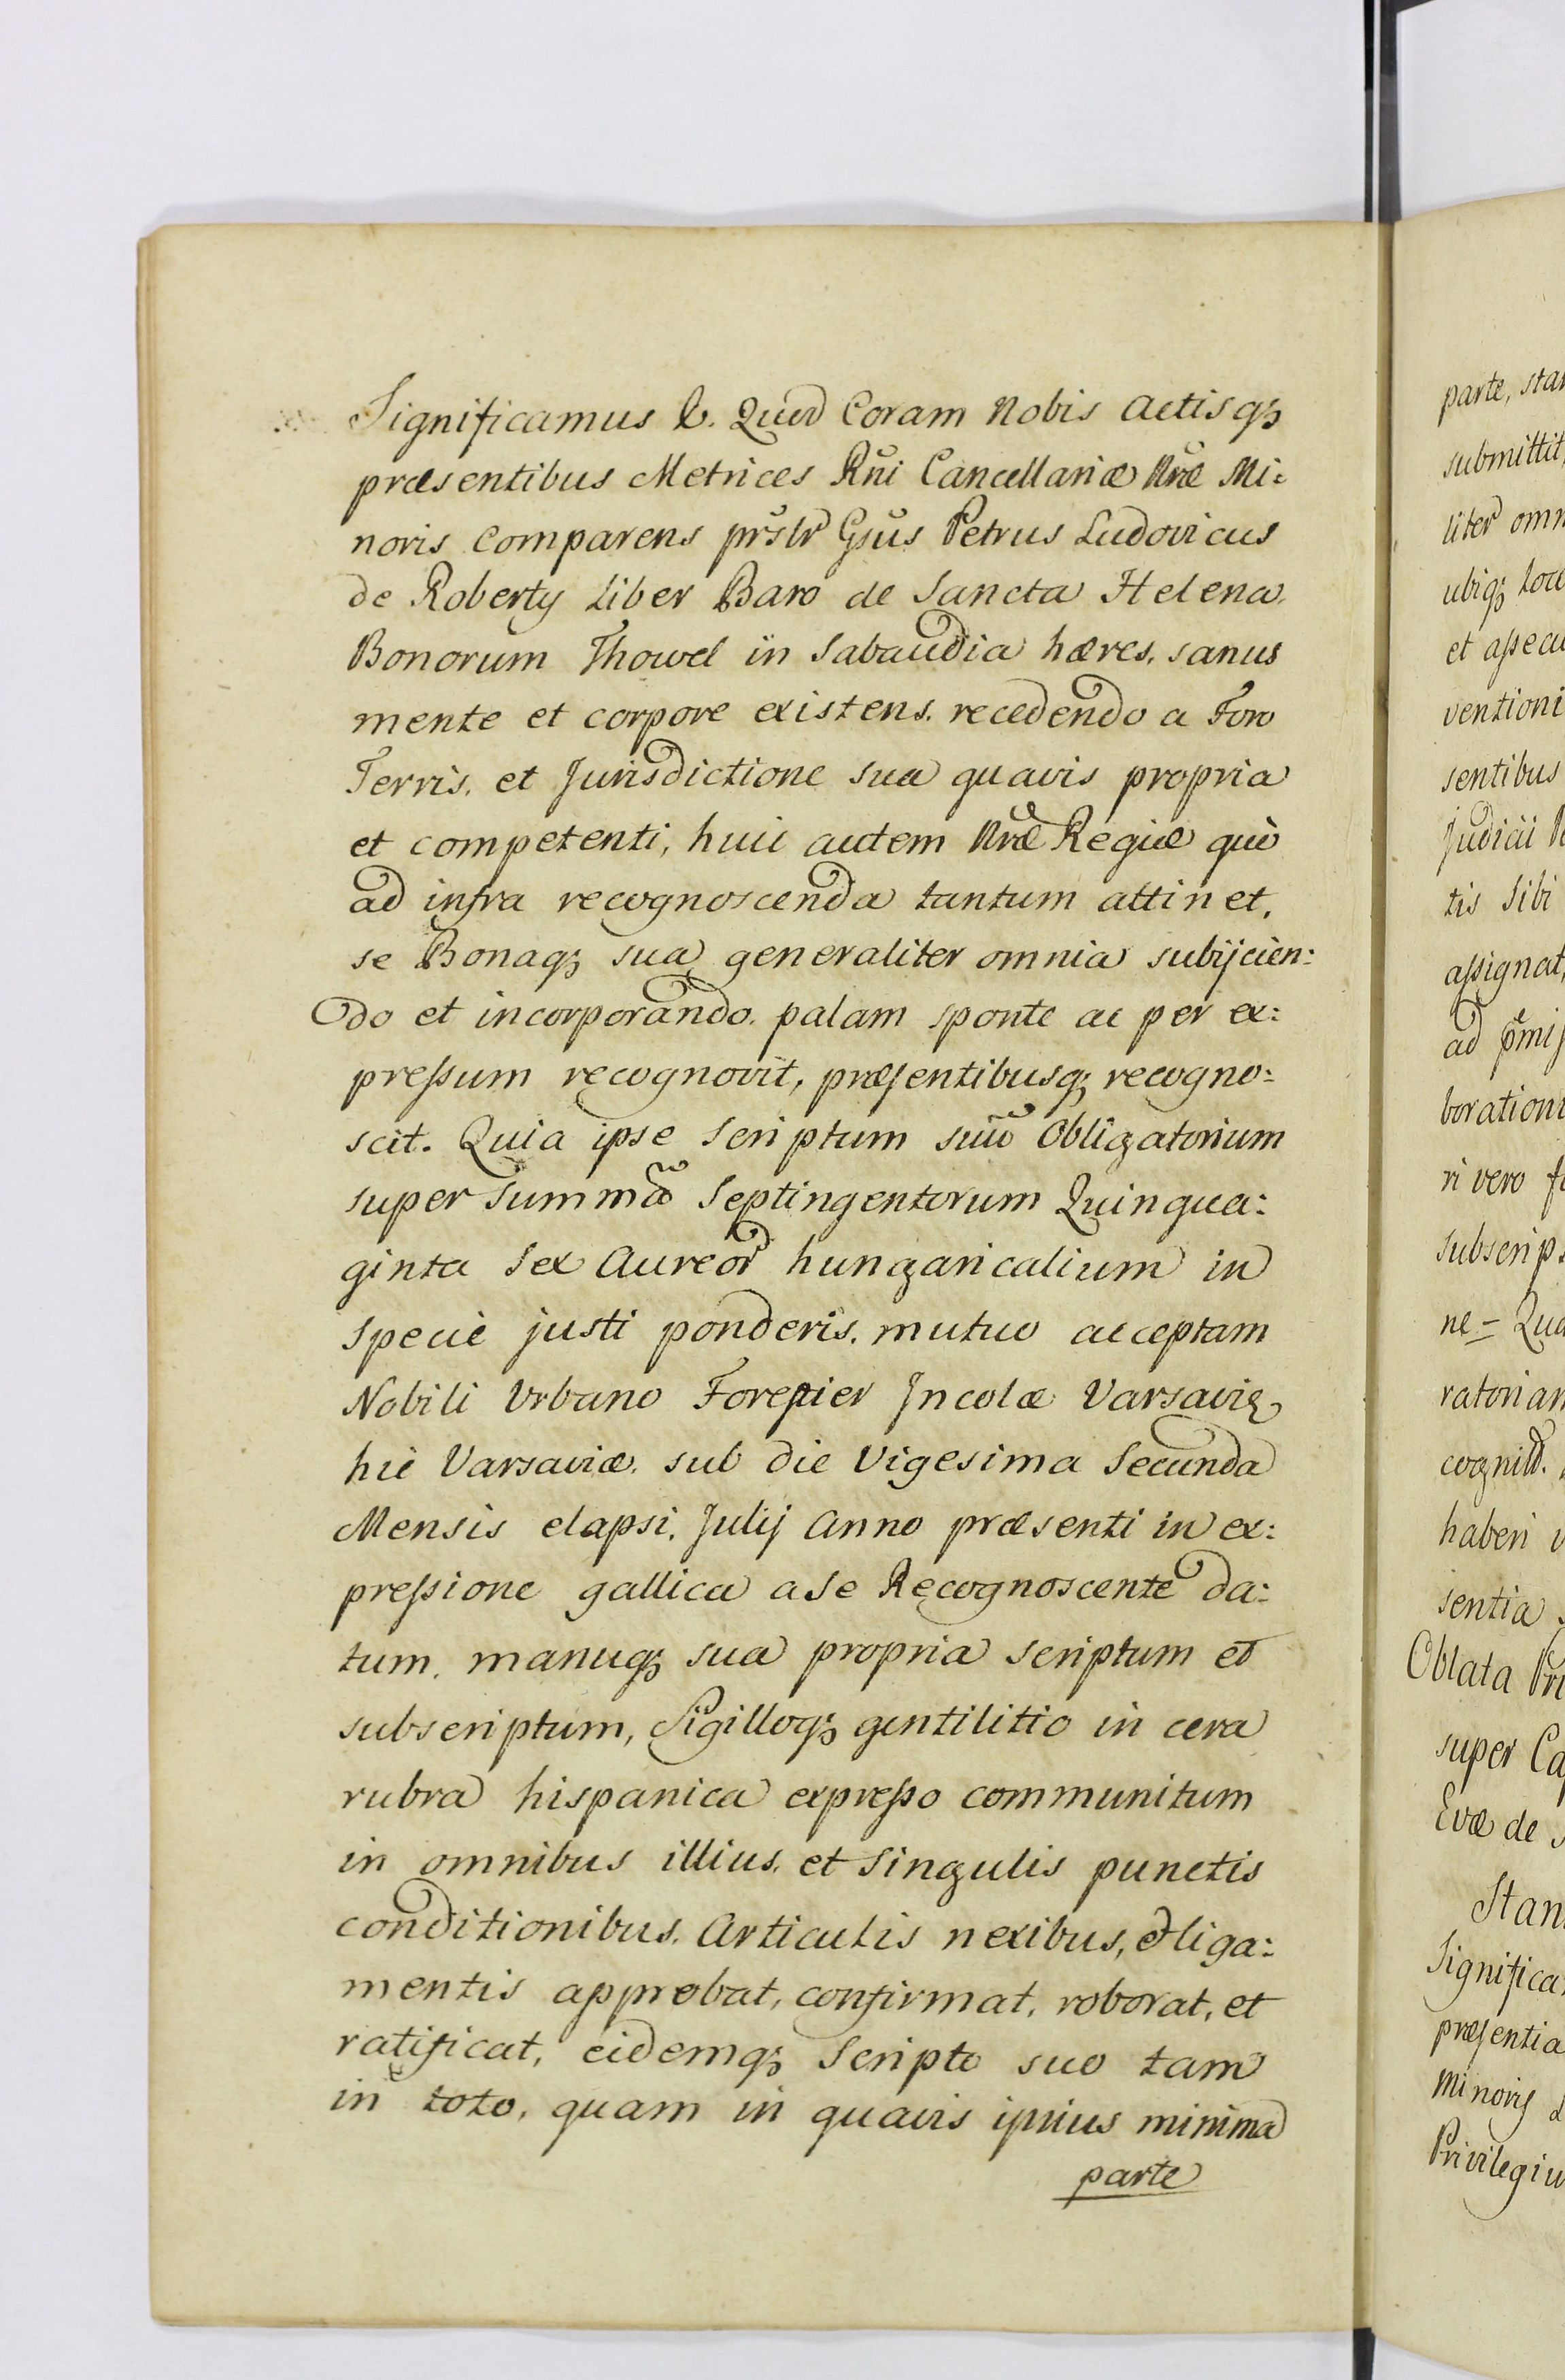 Significamus &. Quod Coram Nobis Actisqȝ
præsentibus Metrices Rñi Cancellariæ Nræ Mi:
noris Comparens prslr Gsus Petrus Ludovicus
de Roberty Liber Baro de Sancta Helena.
Bonorum Thowel in Sabaudia hæres. sanus
mente et corpore existens. recedendo a Foro
Terris. et Jurisdictione sua quavis propria
et competenti, huic autem Nræ Regiæ quò
ad infra recognoscenda tantum attinet.
se Bonaqȝ sua generaliter omnia subijcien:
do et incorporando. palam sponte ac per ex:
pressum recognovit, præsentibusqȝ recogno:
scit. Quia ipse Scriptum suũ Obligatorium
super Summã Septingentorum Quinqua:
ginta Sex Aureor hungaricalium in
Specie justi ponderis. mutuo acceptam
Nobili Urbano Foressier Incolæ Varsaviæ
hic Varsaviæ. sub die Vigesima Secunda
Mensis elapsi. Julij Anno præsenti in ex:
pressione gallica a Se Recognoscente da:
tum. manuqȝ sua propria scriptum et
subscriptum, Sigilloqȝ gentilitio in cera
rubra hispanica expresso communitum
in omnibus illius. et Singulis punctis
conditionibus. Articulis nexibus, et liga:
mentis approbat, confirmat, roborat, et
ratificat, eidemqȝ Scripto suo tam
in toto, quam in quavis ipsius minima
parte
parte,
submittit,
liter
ubiqȝ
et
sentibus
Judicii
tis Sibi
assignat,
ad
ri vero
ne - 
haberi
sentia
Oblata
super
Evæ de
Significa
præsentia